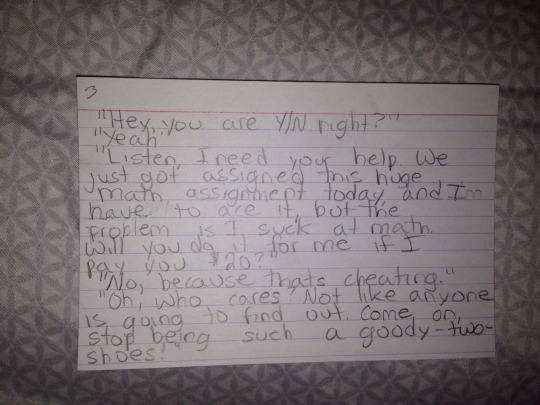 3
"Hey, you are Y/N right?"
"Yeah"
"Listen, I need your help. We
just got assigned this huge
math assignment today, and I'm
have to ace it, but the
problem is I suck at math.
Will you do it for me if I
pay you $20?"
"No, because thats cheating."
"Oh, who cares? Not like anyone
is going to find out. Come on,
stop being such a goody-two-
shoes!"